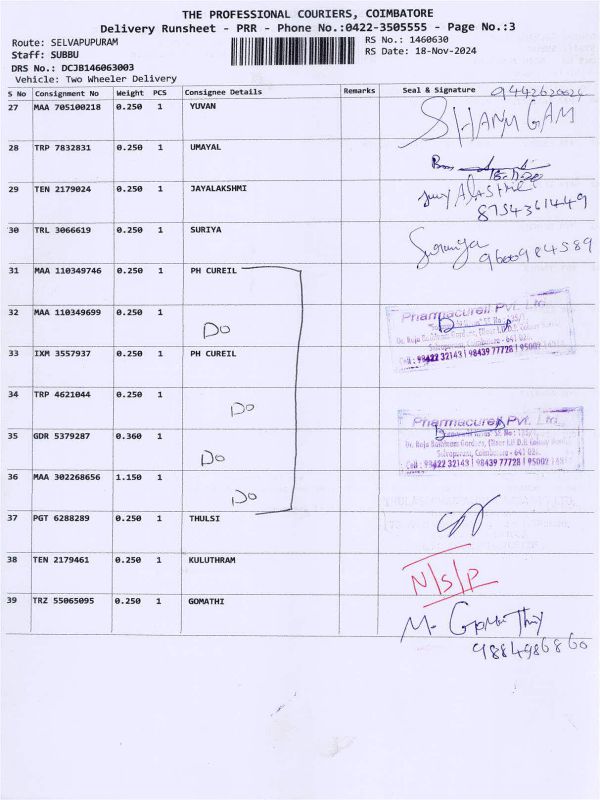 THE PROFESSIONAL COURIERS, COIMBATORE
Delivery Runsheet - PRR - Phone No.:0422-3505555 - Page No.:3
Route: SELVAPUPURAM RS No.: 1460630
Staff: SUBBU RS Date: 18-Nov-2024
DRS No.: DCJB146063003
Vehicle: Two Wheeler Delivery
S No Consignment No Weight PCS Consignee Details Remarks Seal & Signature
27 MAA 705100218 0.250 1 YUVAN
SHANMGAM
28 TRP 7832831 0.250 1 UMAYAL
29 TEN 2179024 0.250 1 JAYALAKSHMI
8754361449
30 TRL 3066619 0.250 1 SURIYA
Suranya
9600984589
31 MAA 110349746 0.250 1 PH CUREIL
32 MAA 110349699 0.250 1 Do
Pharmacureil Pvt. Ltd.
Cell : 98422 32143 | 98439 77728 | 95002
33 IXM 3557937 0.250 1 PH CUREIL
34 TRP 4621044 0.250 1 Do
35 GDR 5379287 0.360 1 Do
Pharmacureil Pvt. Ltd.
Selvapuram, Coimbatore - 641 026.
Cell : 98422 32143 | 98439 77728 | 95002
36 MAA 302268656 1.150 1 Do
37 PGT 6288289 0.250 1 THULSI
38 TEN 2179461 0.250 1 KULUTHRAM N/S/P
39 TRZ 55065095 0.250 1 GOMATHI
9884986860